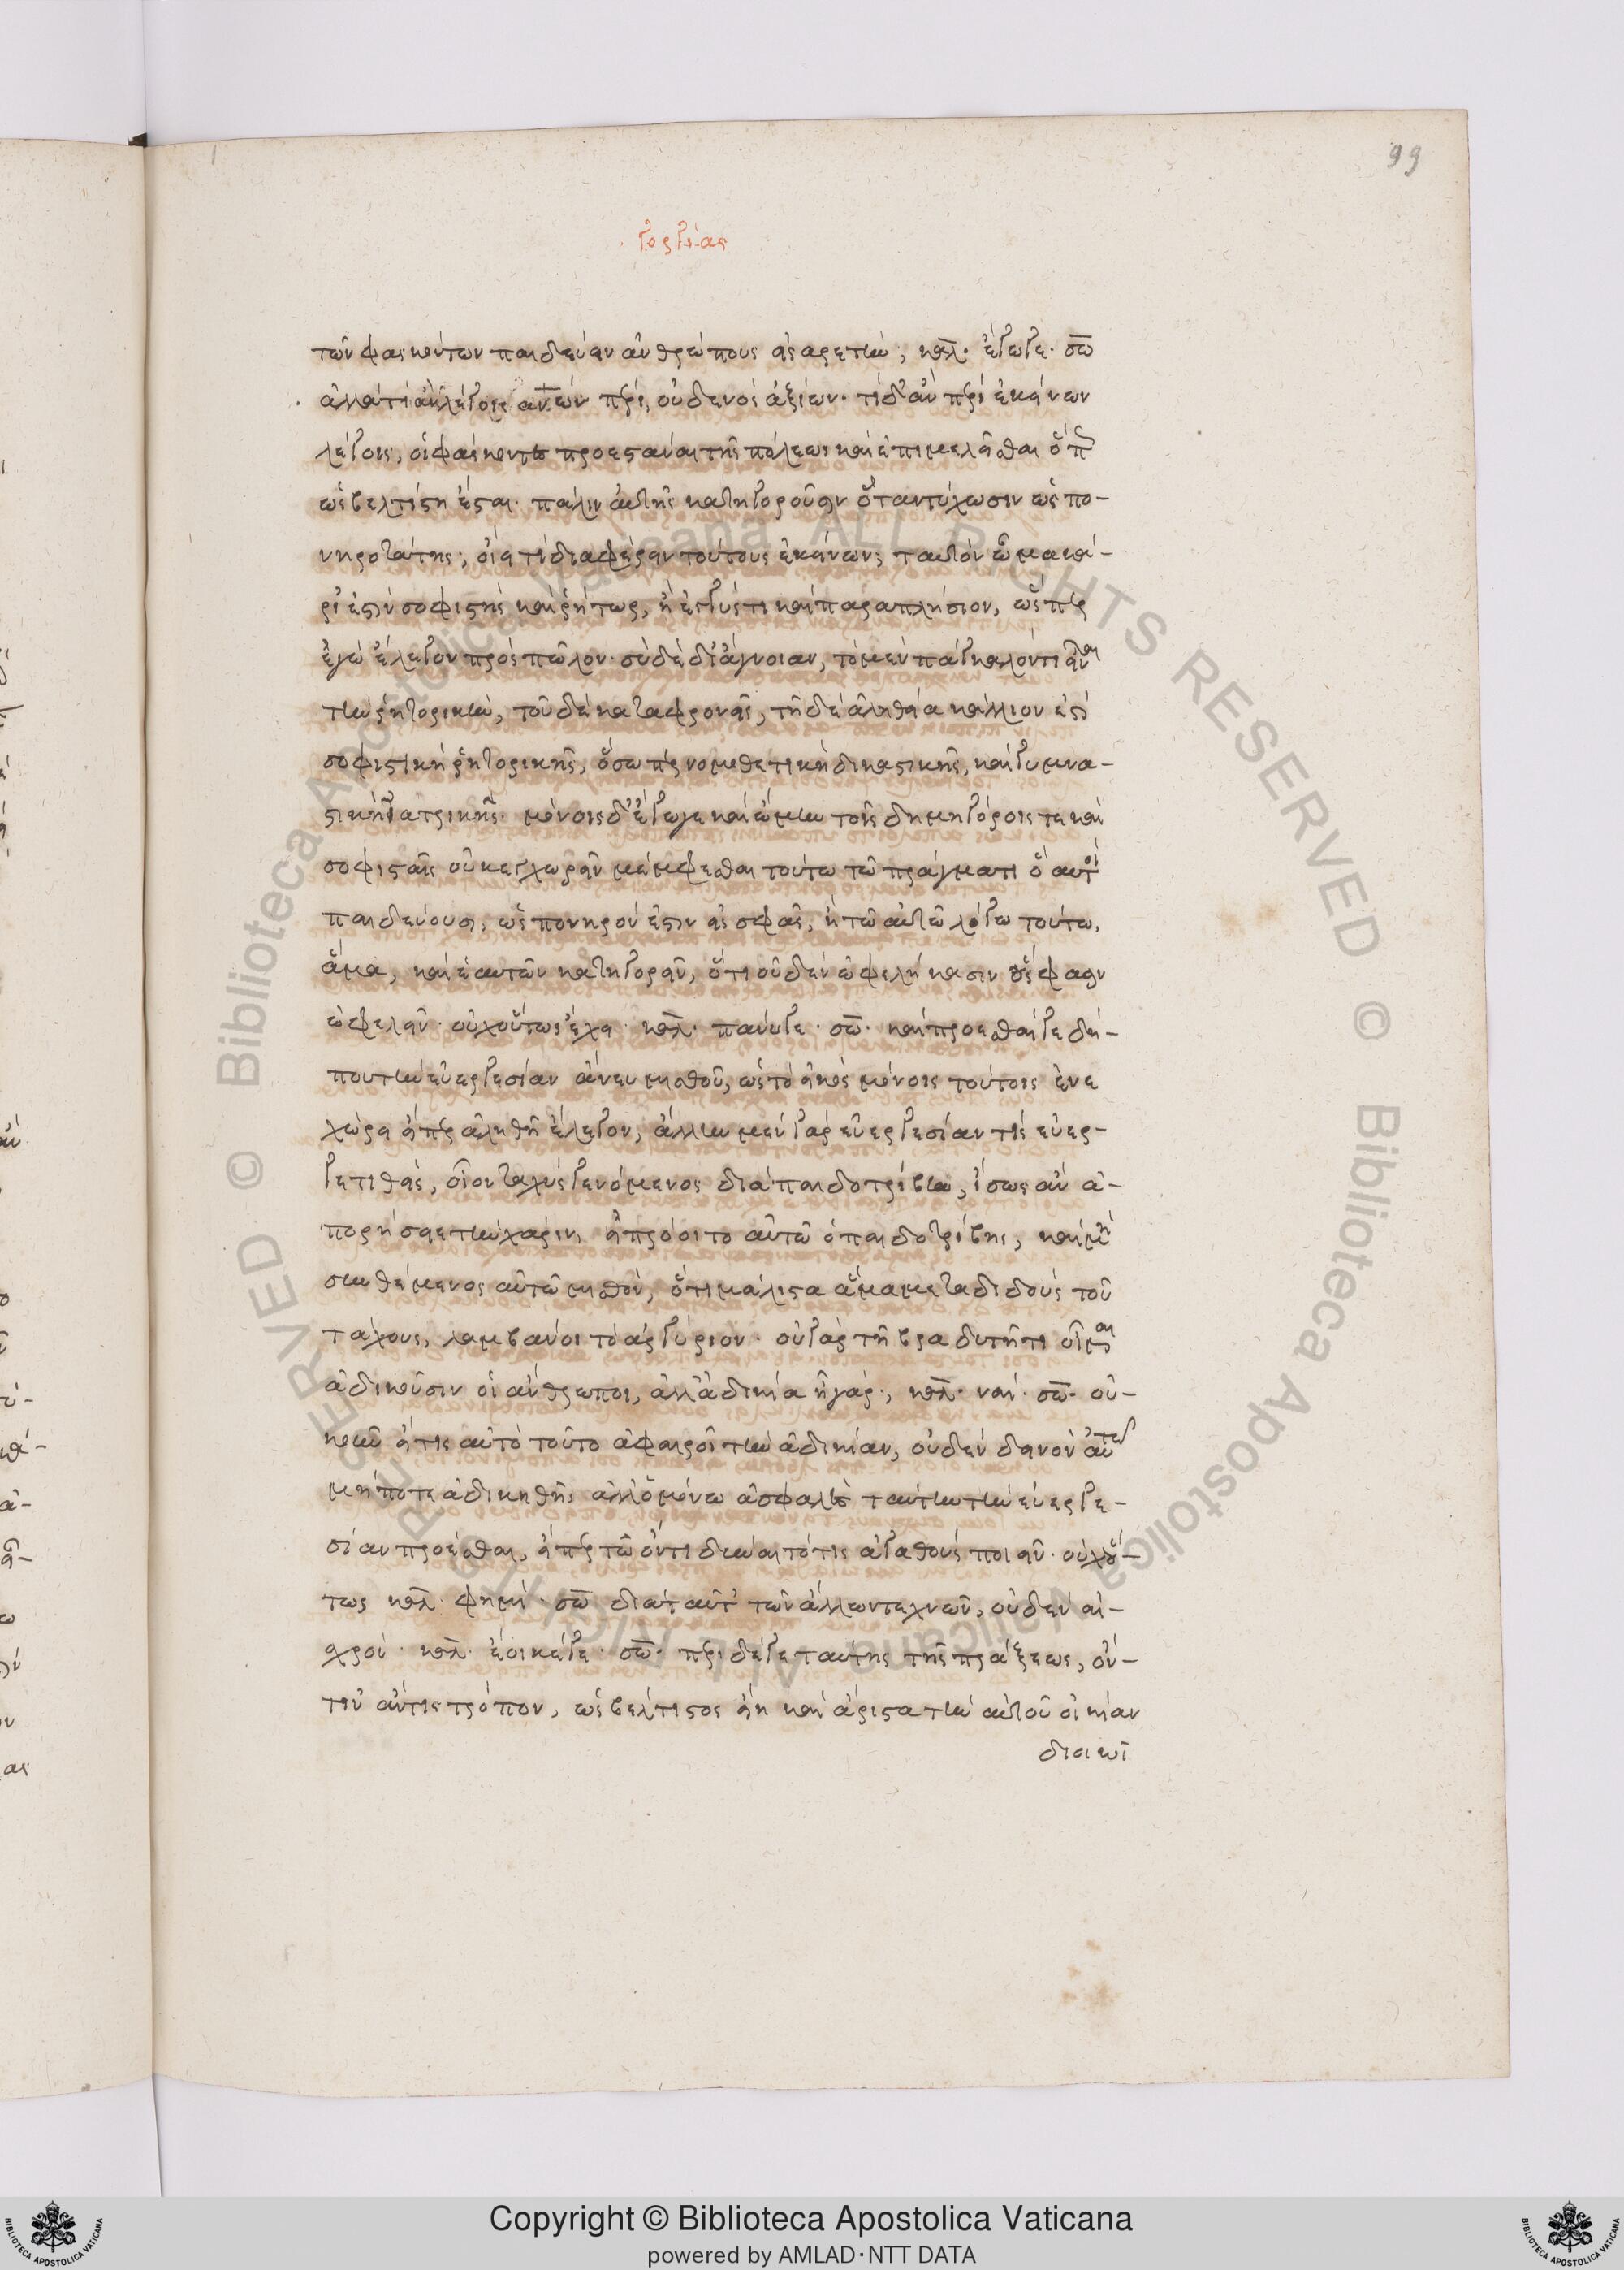 99
γοργίας
τῶν φασκόντων παιδεύειν ἀνθρώπους εἰς ἀρετήν; καλ. ἔγωγε. σω
ἀλλὰ τί ἂν λέγοις ἀνῶν πέρι, οὐδενὸς ἀξίων. τί δ' ἂν περὶ ἐκείνων
λέγοις, οἳ φάσκοντες προεστάναι τῆς πόλεως καὶ ἐπιμελεῖσθαι ὅπ
ὡς βελτίστη ἔσται. πάλιν αὐτῆς κατηγοροῦσιν ὅταν τύχωσιν ὡς πο-
νηροτάτης; οἴει τι διαφέρειν τούτους ἐκείνων; ταυτὸν ὦ μακά-
ρι' ἐστὶν σοφιστὴς καὶ ῥήτωρ, ἢ ἐγγύς τι καὶ παραπλήσιον, ὥσπερ
ἐγὼ ἔλεγον πρὸς πῶλον. σὺ δὲ δι' ἄγνοιαν, τὸ μὲν πάγκαλόν τι εἶναι
τὴν ῥητορικήν, τοῦ δὲ καταφρονεῖς, τῇ δὲ ἀληθείᾳ κάλλιον ἐστὶ
σοφιστικὴ ῥητορικῆς, ὅσωπερ νομοθετικὴ δικαστικῆς, καὶ γυμνα-
στικὴ ἰατρικῆς. μόνοις δ' ἔγωγε καὶ ᾤμην τοῖς δημηγόροις τε καὶ
σοφισταῖς οὐκ ἐγχωρεῖν μέμφεσθαι τούτω τῶ πράγματι ὃ αὐτοὶ
παιδεύουσι, ὡς πονηρόν ἐστιν εἰς σφᾶς, ἢ τῶ αὐτῶ λόγω τούτω,
ἅμα, καὶ ἑαυτῶν κατηγορεῖν, ὅτι οὐδὲν ὠφελήκασιν οὕς φασιν
ὠφελεῖν. οὐχ οὕτως ἔχει. καλ. πάνυ γε. σω. καὶ προέσθαι γε δή-
που τὴν εὐεργεσίαν ἄνευ μισθοῦ, ὡς τὸ εἰκὸς μόνοις τούτοις ἐνε
χώρει εἴπερ ἀληθῆ ἔλεγον, ἄλλην μὲν γὰρ εὐεργεσίαν τις εὐερ-
γετηθείς, οἷον ταχὺς γενόμενος διὰ παιδοτρίβην, ἴσως ἂν ἀ-
ποστήσειε τὴν χάριν, εἰ πρόοιτο αὐτῶ ὁ παιδοτρίβης, καὶ μὴ
συνθέμενος αὐτῶ μισθὸν, ὅτι μάλιστα ἅμα μεταδιδοὺς τοῦ
τάχους, λαμβάνοι τὸ ἀργύριον. οὐ γὰρ τῇ βραδυτῆτι οἶμαι
ἀδικοῦσιν οἱ ἄνθρωποι, ἀλλ' ἀδικία ἦ γάρ; καλ. ναί. σω. οὐ-
κοῦν εἴ τις αὐτὸ τοῦτο ἀφαιροῖ τὴν ἀδικίαν, οὐδὲν δεινὸν αὐτῶ
μήποτε ἀδικηθῇ, ἀλλὰ μόνω ἀσφαλὲς ταύτην τὴν εὐεργε-
σίαν προέσθαι, εἴπερ τῶ ὄντι δύναιτό τις ἀγαθοὺς ποιεῖν. οὐχ οὕ-
τως καλ. φημί. σω διὰ ταῦτ' τῶν ἄλλων τεχνῶν, οὐδὲν αἰ-
σχρόν. καλ. ἔοικέ γε. σω. περὶ δέ γε ταύτης τῆς πράξεως, ὅν-
τιν' ἄν τις τρόπον, ὡς βέλτιστος εἴη καὶ ἄριστα τὴν αὐτοῦ οἰκίαν
διοικοῖ